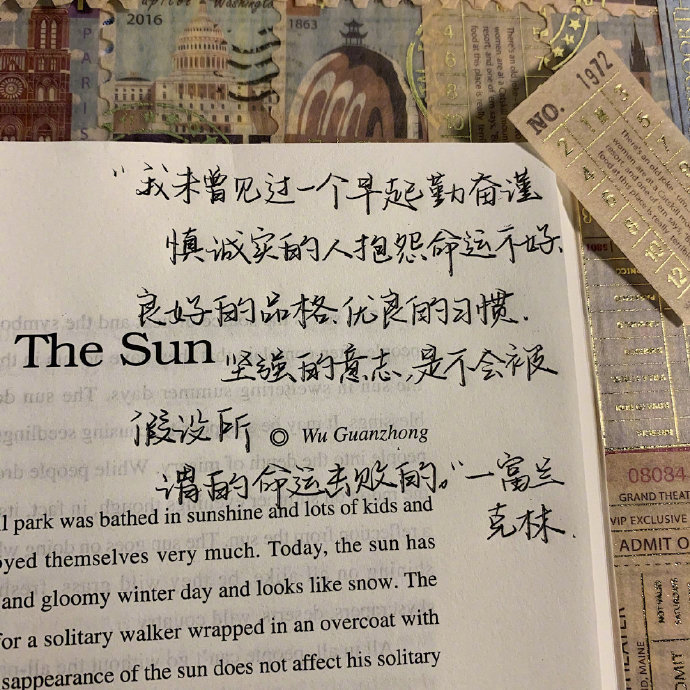 2016
1863
PARIS
NO. 1972
"我未曾见过一个早起勤奋谨
慎.诚实的人抱怨命运不好.
良好的品格.优良的习惯.
The Sun
坚强的意志,是不会被
假设所
◎ Wu Guanzhong
谓的命运击败的。"一富兰
克林.
l park was bathed in sunshine and lots of kids and
oyed themselves very much. Today, the sun has
and gloomy winter day and looks like snow. The
for a solitary walker wrapped in an overcoat with
sappearance of the sun does not affect his solitary
08084
GRAND THEAT
VIP EXCLUSIVE
ADMIT O